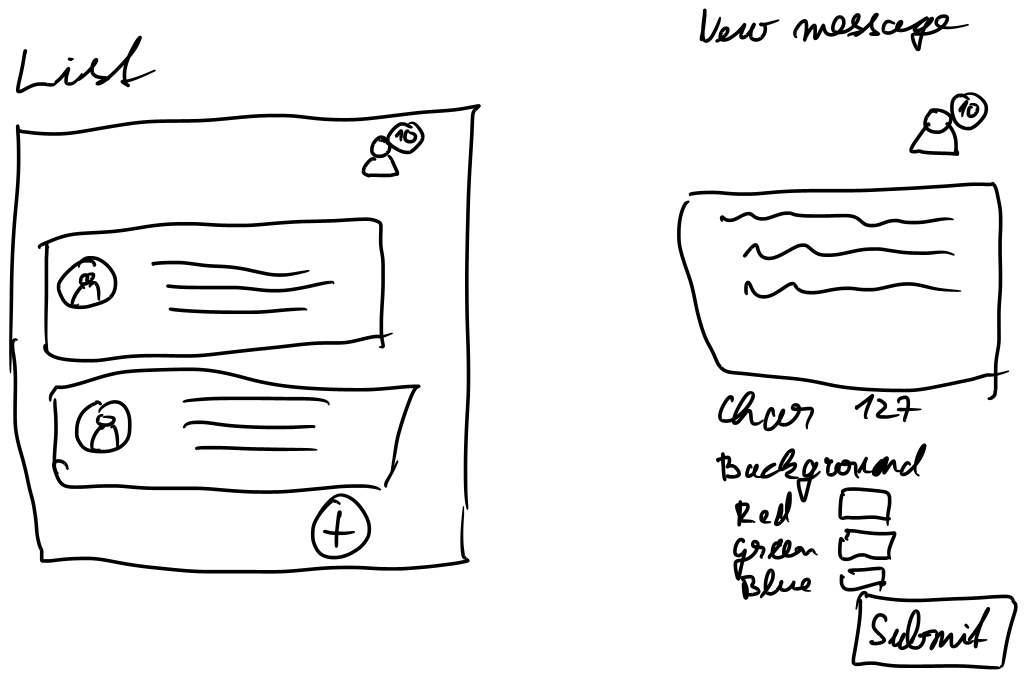 List
10
New message
10
Char 127
Background
Red
Green
Blue
Submit